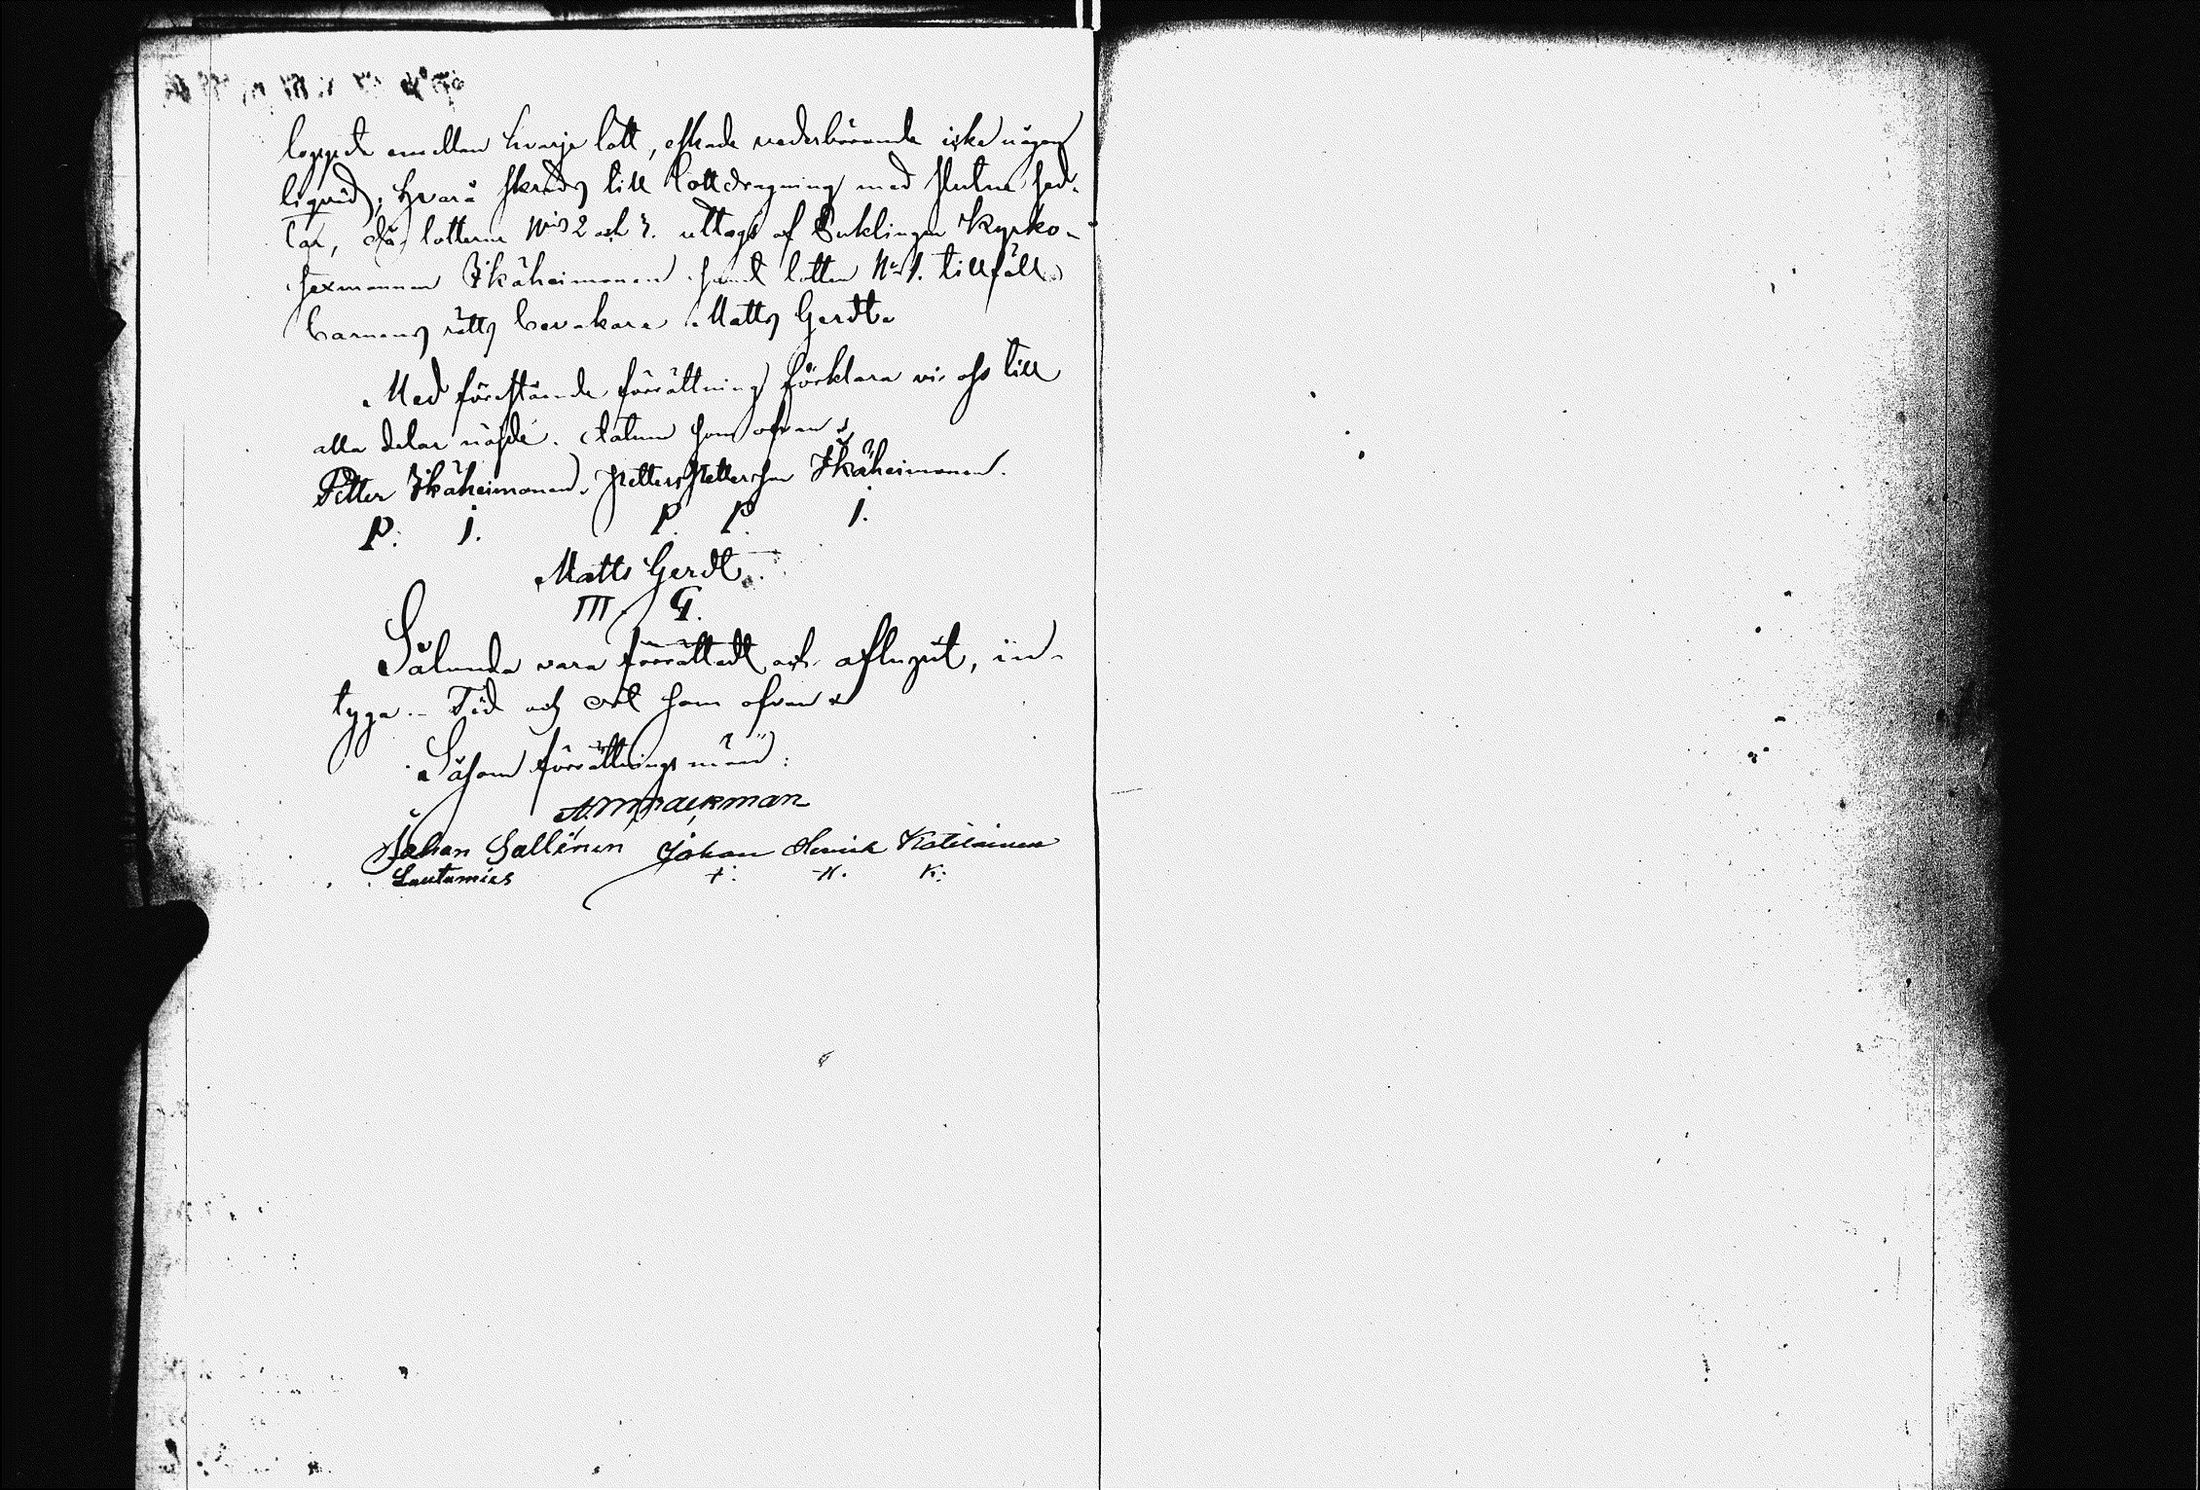 loppet emellan hvarje lott, eskade vederbörande icke någon
liqvid; hvarå skreds till lottdragning med slutna sed-
lar, då lotterne N:ris 2 och 3. uttogs af Enklingen Kyrko-
sexmannen Ikäheimonen samt lotten N:o 1. tillföll
barnens rätts bevakare Matts Gerdt.
Med förestående förrättning förklara vi oss till
alla delar nöjde. Datum som ofvan
Petter Ikäheimonen. Petter Pettersson Ikäheimonen.
P. I. P. P. I.
Matts Gerdt.
M. G.
Sålunda vara förrättadt och aflupit, in-
tyga. Tid och Ort som ofvan
Såsom förrättningsmän:
Johan Sallinen Johan Henrik Katilainen
Lautamies H. K.